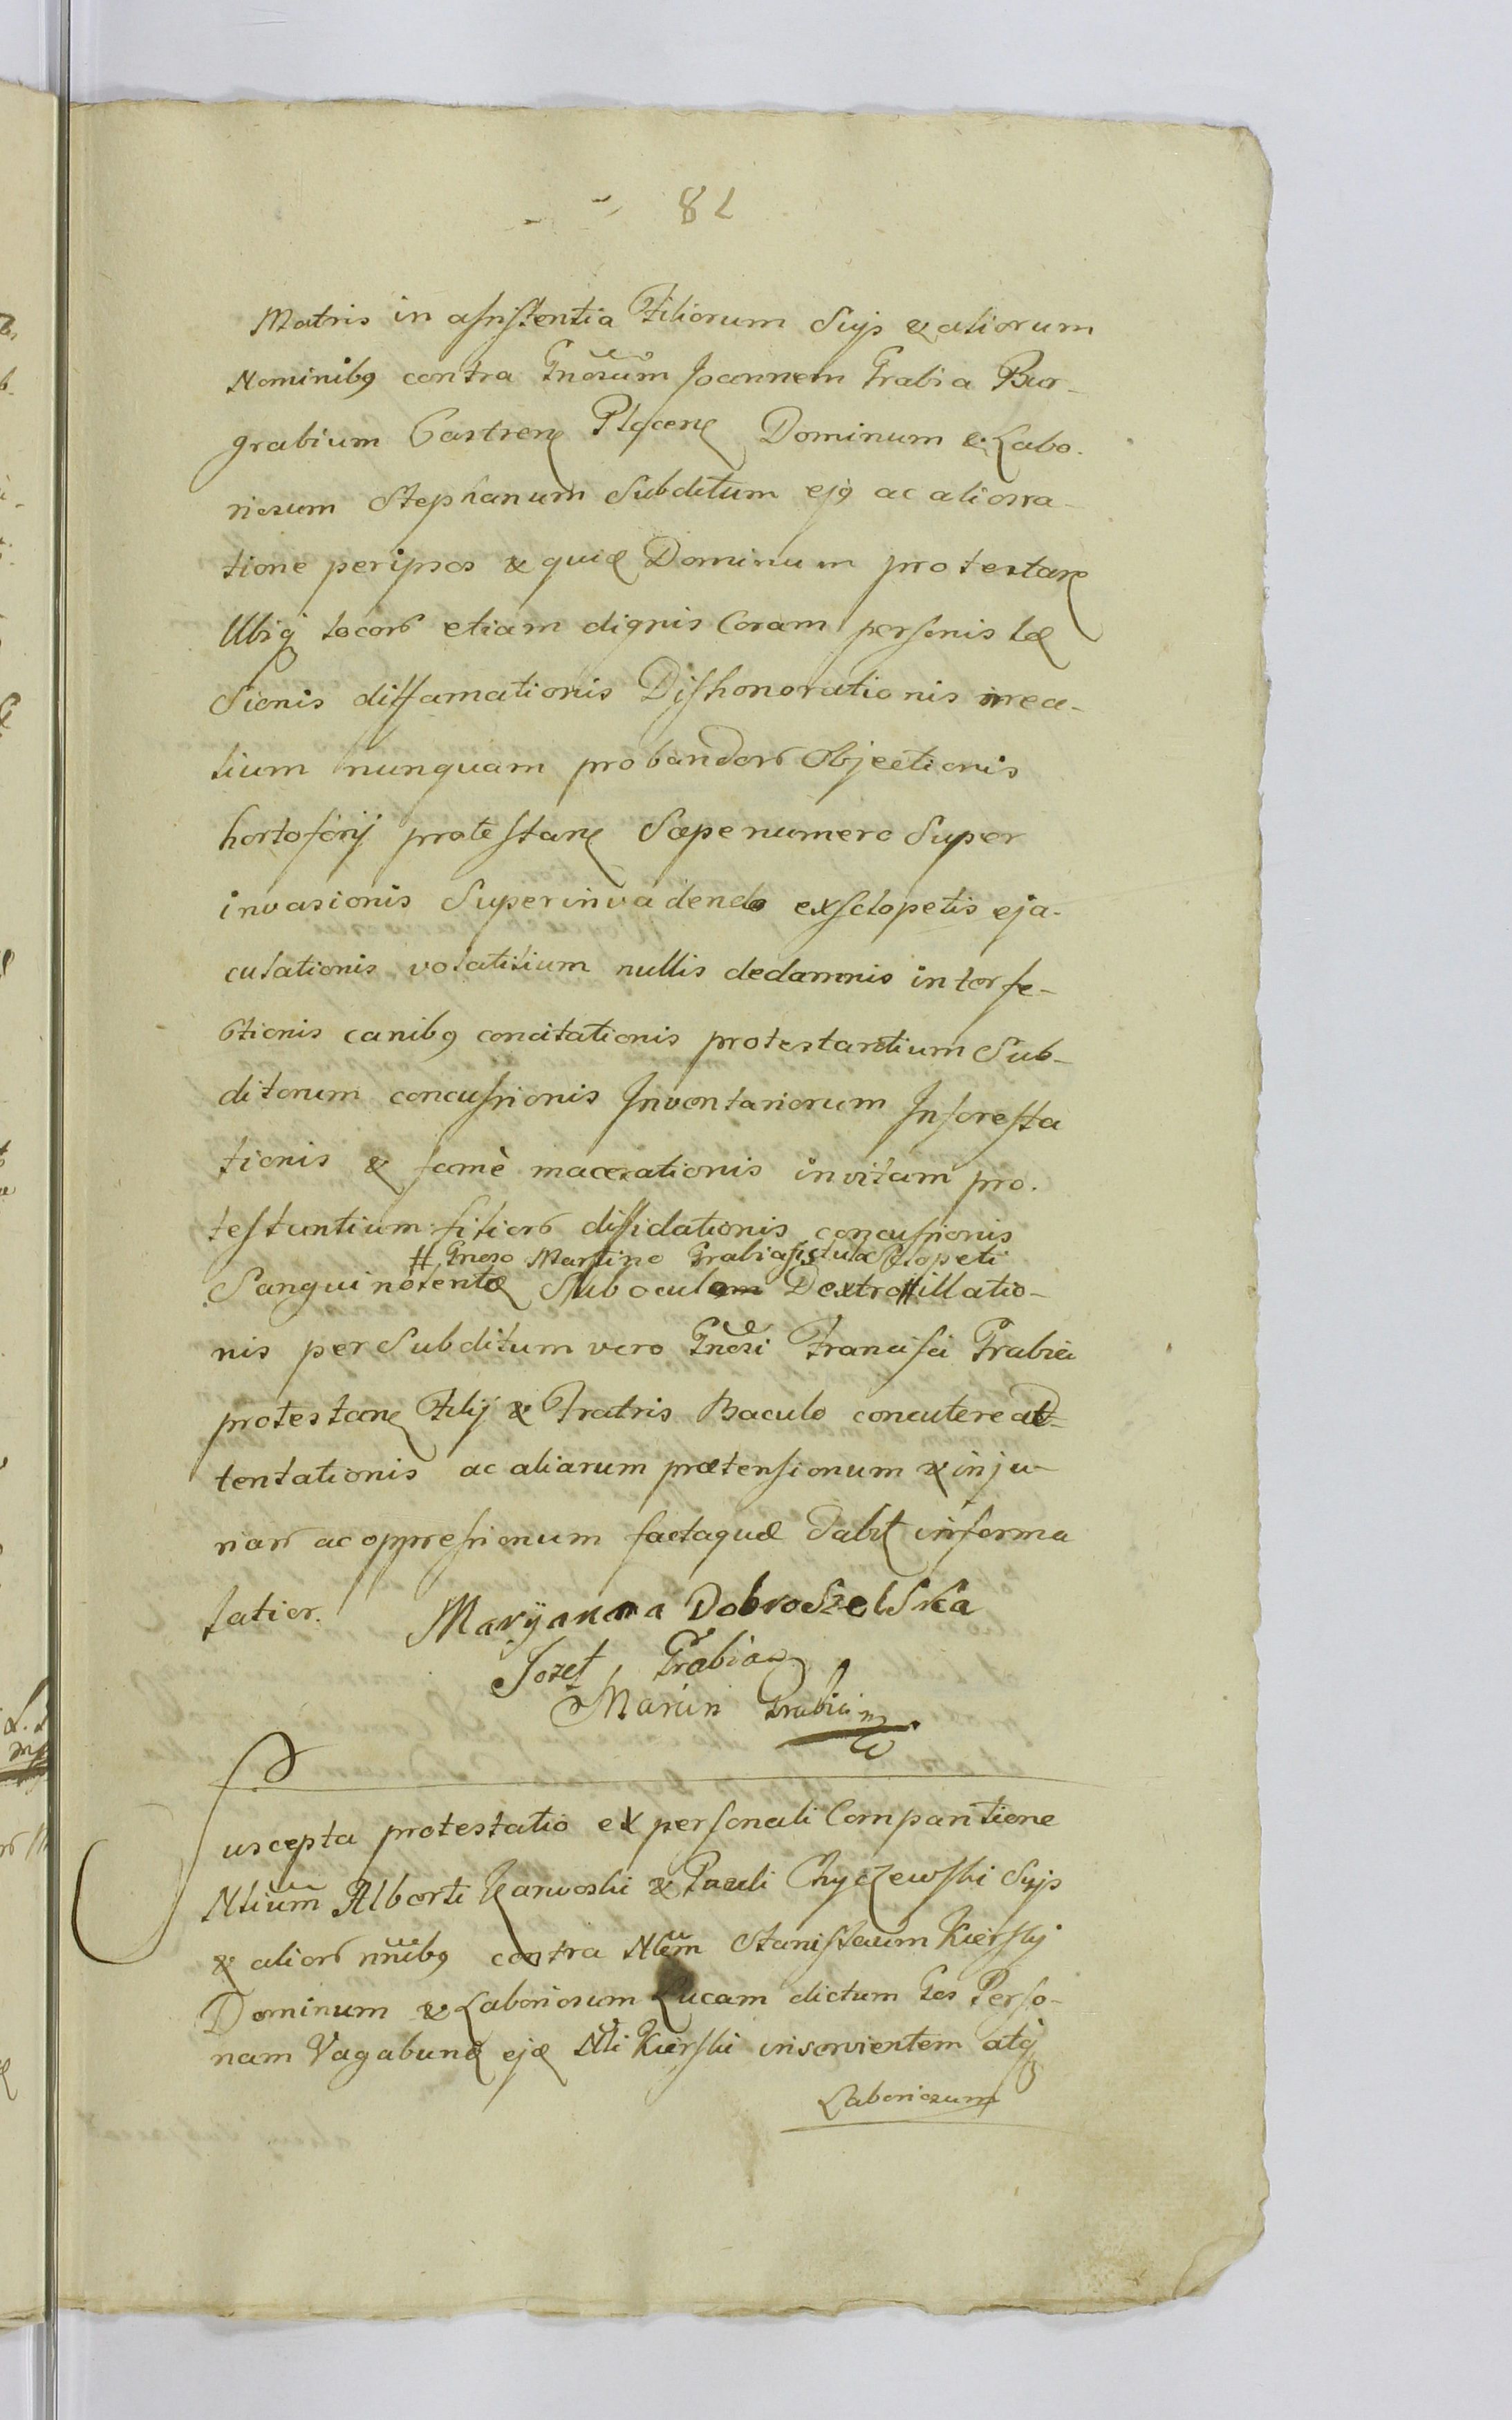 82
Matris in assistentia Filiorum Suis & aliorum
Nominibq contra Gnosum Joannem Grabia Bur-
grabium Castren Plocen Dominum & Labo-
riosum Stephanum Subditum ejq ac alios ra-
tione per ipsos & quid Dominum protestan
Ubiq locorum etiam dignis Coram personis læ
sionis diffamationis Dishonorationis mea-
tium nunquam probandorum Objectionis
protestan Sæpenumero Super
invasionis Superinvadendo ex sclopetis eja-
culationis volatilium nullis de damnis interfe-
ctionis canibq concitationis protestantium Sub-
ditorum concussionis Inventariorum
tionis & famè macerationis in vitam pro-
testantium filiorum diffidationis concussionis
# Gnoso Martino Grabia fistula Sclopeti
Sanguinolentæ Sub oculum Dextro # illatio-
nis per Subditum vero Gnosi Francisci Grabia
protestan Filij & Fratris Baculo concutere at-
tentationis ac aliarum prætensionum & inju-
riarum ac oppressionum facta quæ dabit informa
tatior. Maryanna Dobroszelska
Jozef Grabia
Marcin Grabia
Suscepta protestatio ex personali Comparitione
Nlium Alberti Karwoski & Pauli Chyczewski Suis
& aliorum nnibq contra Nlem Stanislaum Kierski
Dominum & Laboriosum Lucam dictum Ges Perso-
nam Vagabund ejq Nli Kierski inservientem atq
Laboriosum